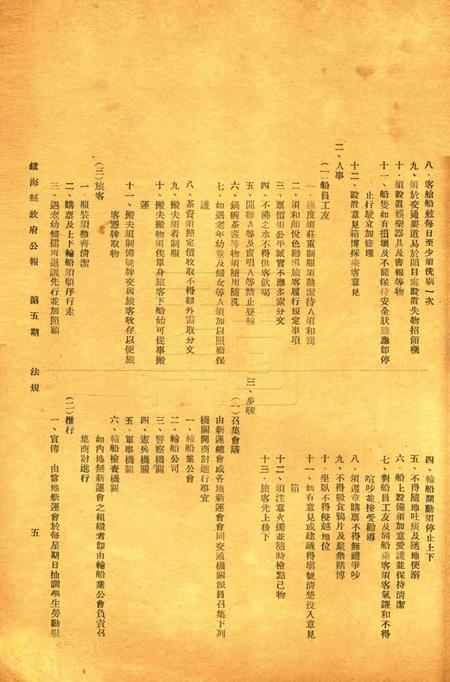 八、客艙船舷每日至少須洗刷一次
九、須於交通要道易於屬目處設置失物招領欄
十、須設置娛樂器具及書報等物
十一、船隻如有損壞及不能保持安全狀態應即停
止行駛立加修理
十二、設置意見箱博採乘客意見
二、人事
(一)船員工友
一、態度須莊重制服須整潔待人須和藹
二、須和顏悅色勸導旅客履行規定事項
三、票價須公平誠實不應多索分文
四、不沸之水不得供客飲喝
五、閒雜人等及賣唱人等禁止登輪
六、鍋碗茶盞等物須隨用隨洗
七、如遇老年幼童及婦女等人須加以照顧保
護
八、茶資須照定價收取不得額外需取分文
九、搬夫須着制服
十、搬夫搬物須俟單身旅客下船始可從事搬
運
十一、搬夫須制備號牌交與旅客收存以便旅
客憑牌取物
(二)旅客
一、服裝須整齊清潔
二、購票及上下輪船須順序行走
三、遇老幼婦孺須退讓先行並加照顧
鎮海縣政府公報 第五期 法規 五
四、輪船開動須停止上下
五、不得隨地吐痰及隨地便溺
六、船上設備須加意愛護並保持清潔
七、對船員工友及同船乘客須客氣謙和不得
喧吵並接受勸導
八、須遵章購票不得無禮爭吵
九、不得吸食鴉片及聚衆賭博
十、坐臥不得侵越地位
十一、如有意見或建議得填號清楚投入意見
箱
十二、須注意火燭並隨時檢點己物
十三、旅客先上後下
三、步驟
(一)召集會議
由新運總會或各地新運會會同交通機關派員召集下列
機關開商討進行事宜
一、輪船業公會
二、輪船公司
三、警察機關
四、憲兵機關
五、軍事機關
六、輪船檢查機關
如內地無新運會之組織者即由輪船業公會負責召
集商討進行
(二)推行
一、宣傳 由當地新運會於每星期日抽調學生勞動服